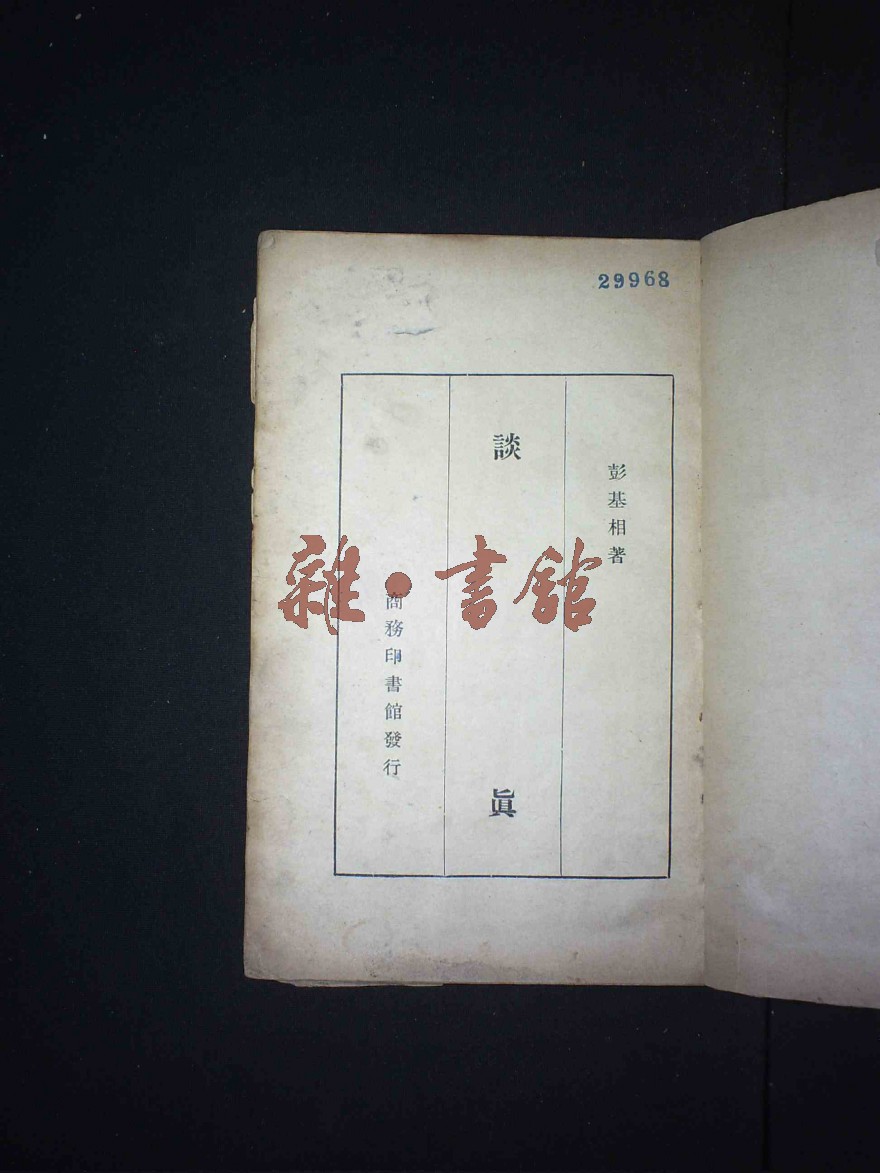 29968
彭基相著
談眞
商務印書館發行
雜·書館